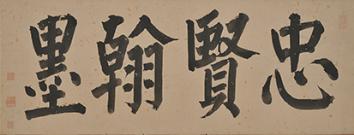 忠賢翰墨